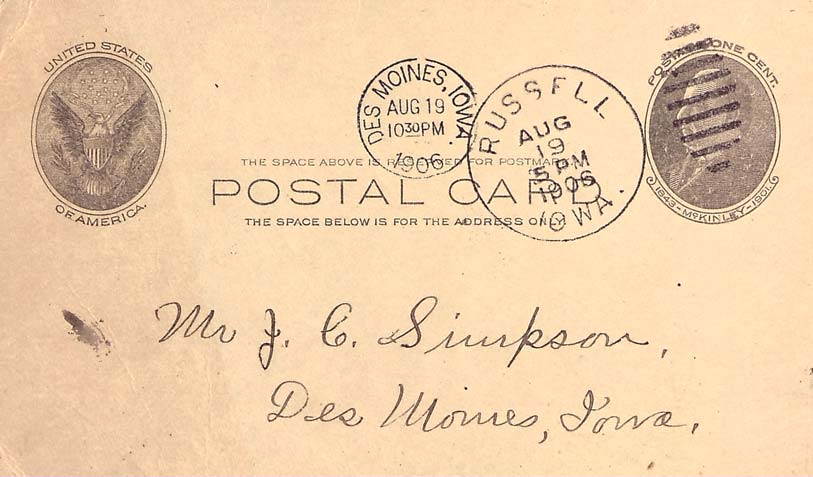 UNITED STATES
OF AMERICA.
DES MOINES, IOWA.
AUG 19
10 30 PM
1906
RUSSELL
AUG
19
5 PM
1906
IOWA.
POSTAGE ONE CENT.
1843-McKINLEY-1901.
THE SPACE ABOVE IS RESERVED FOR POSTMARK.
POSTAL CARD
THE SPACE BELOW IS FOR THE ADDRESS ONLY.
Mr J. C. Simpson,
Des Moines, Iowa.